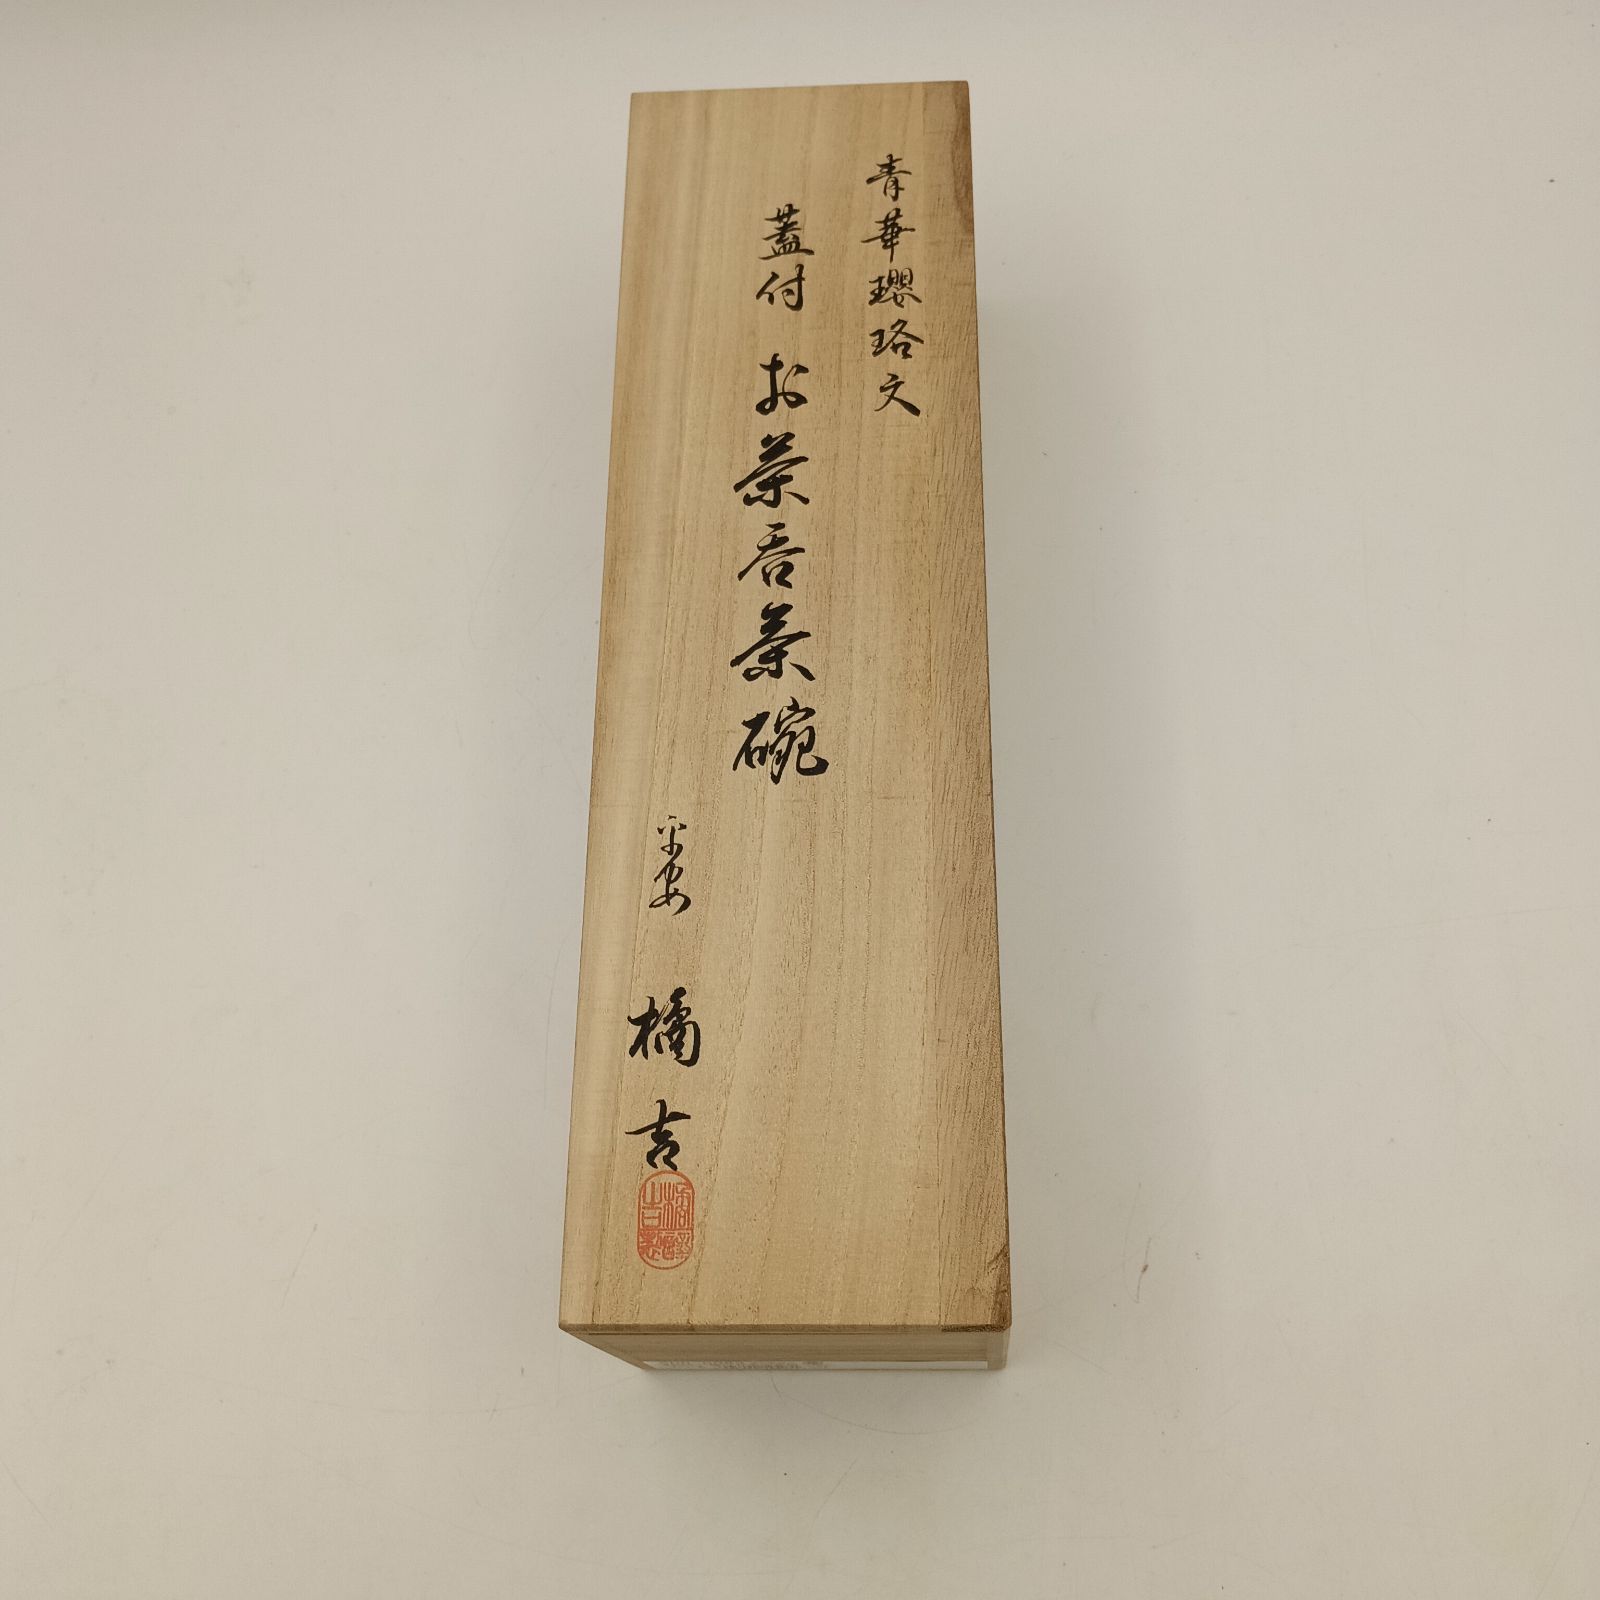 青華瓔珞文
蓋付 お茶呑茶碗
平安 橘吉